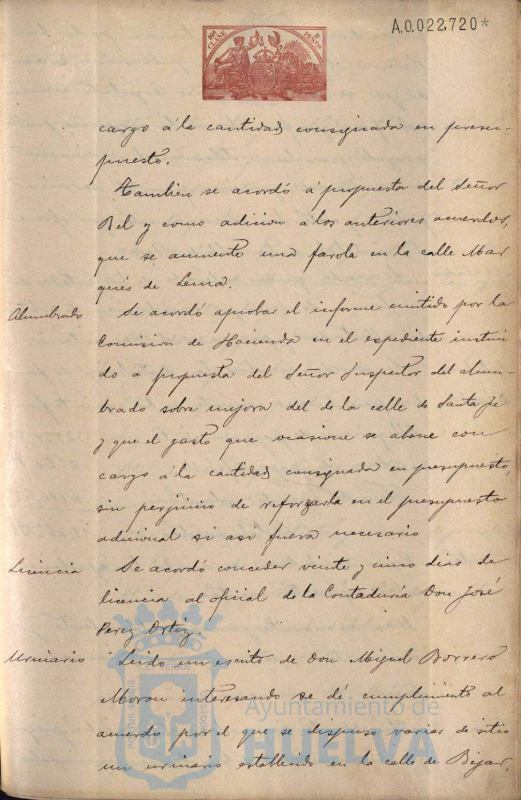 A.0.022.720*
10ª CLASE
2 PESETAS
cargo á la cantidad consignada en presu-
puesto.
Tambien se acordó á propuesta del Señor
Bel y como adicion á los anteriores acuerdos,
que se aumente una farola en la calle Mar
qués de Lema.
Alumbrado
Se acordó aprobar el informe emitido por la
Comision de Hacienda en el expediente instrui
do a propuesta del Señor Inspector del alum-
brado sobre mejora del de la calle de Santa Fé
y que el gasto que ocasione se abone con
cargo á la cantidad consignada en presupuesto,
sin perjuicio de reforzarla en el presupuesto
adicional si asi fuera necesario
Licencia
Se acordó conceder veinte y cinco dias de
licencia al oficial de la Contaduria Don José
Perez Ortiz.
Urinario
Leido un escrito de Don Miguel Borrero
Moron interesando se dé cumplimiento al
acuerdo por el que se dispuso variar de sitio
un urinario establecido en la calle de Bejar,
Ayuntamiento de
HUELVA